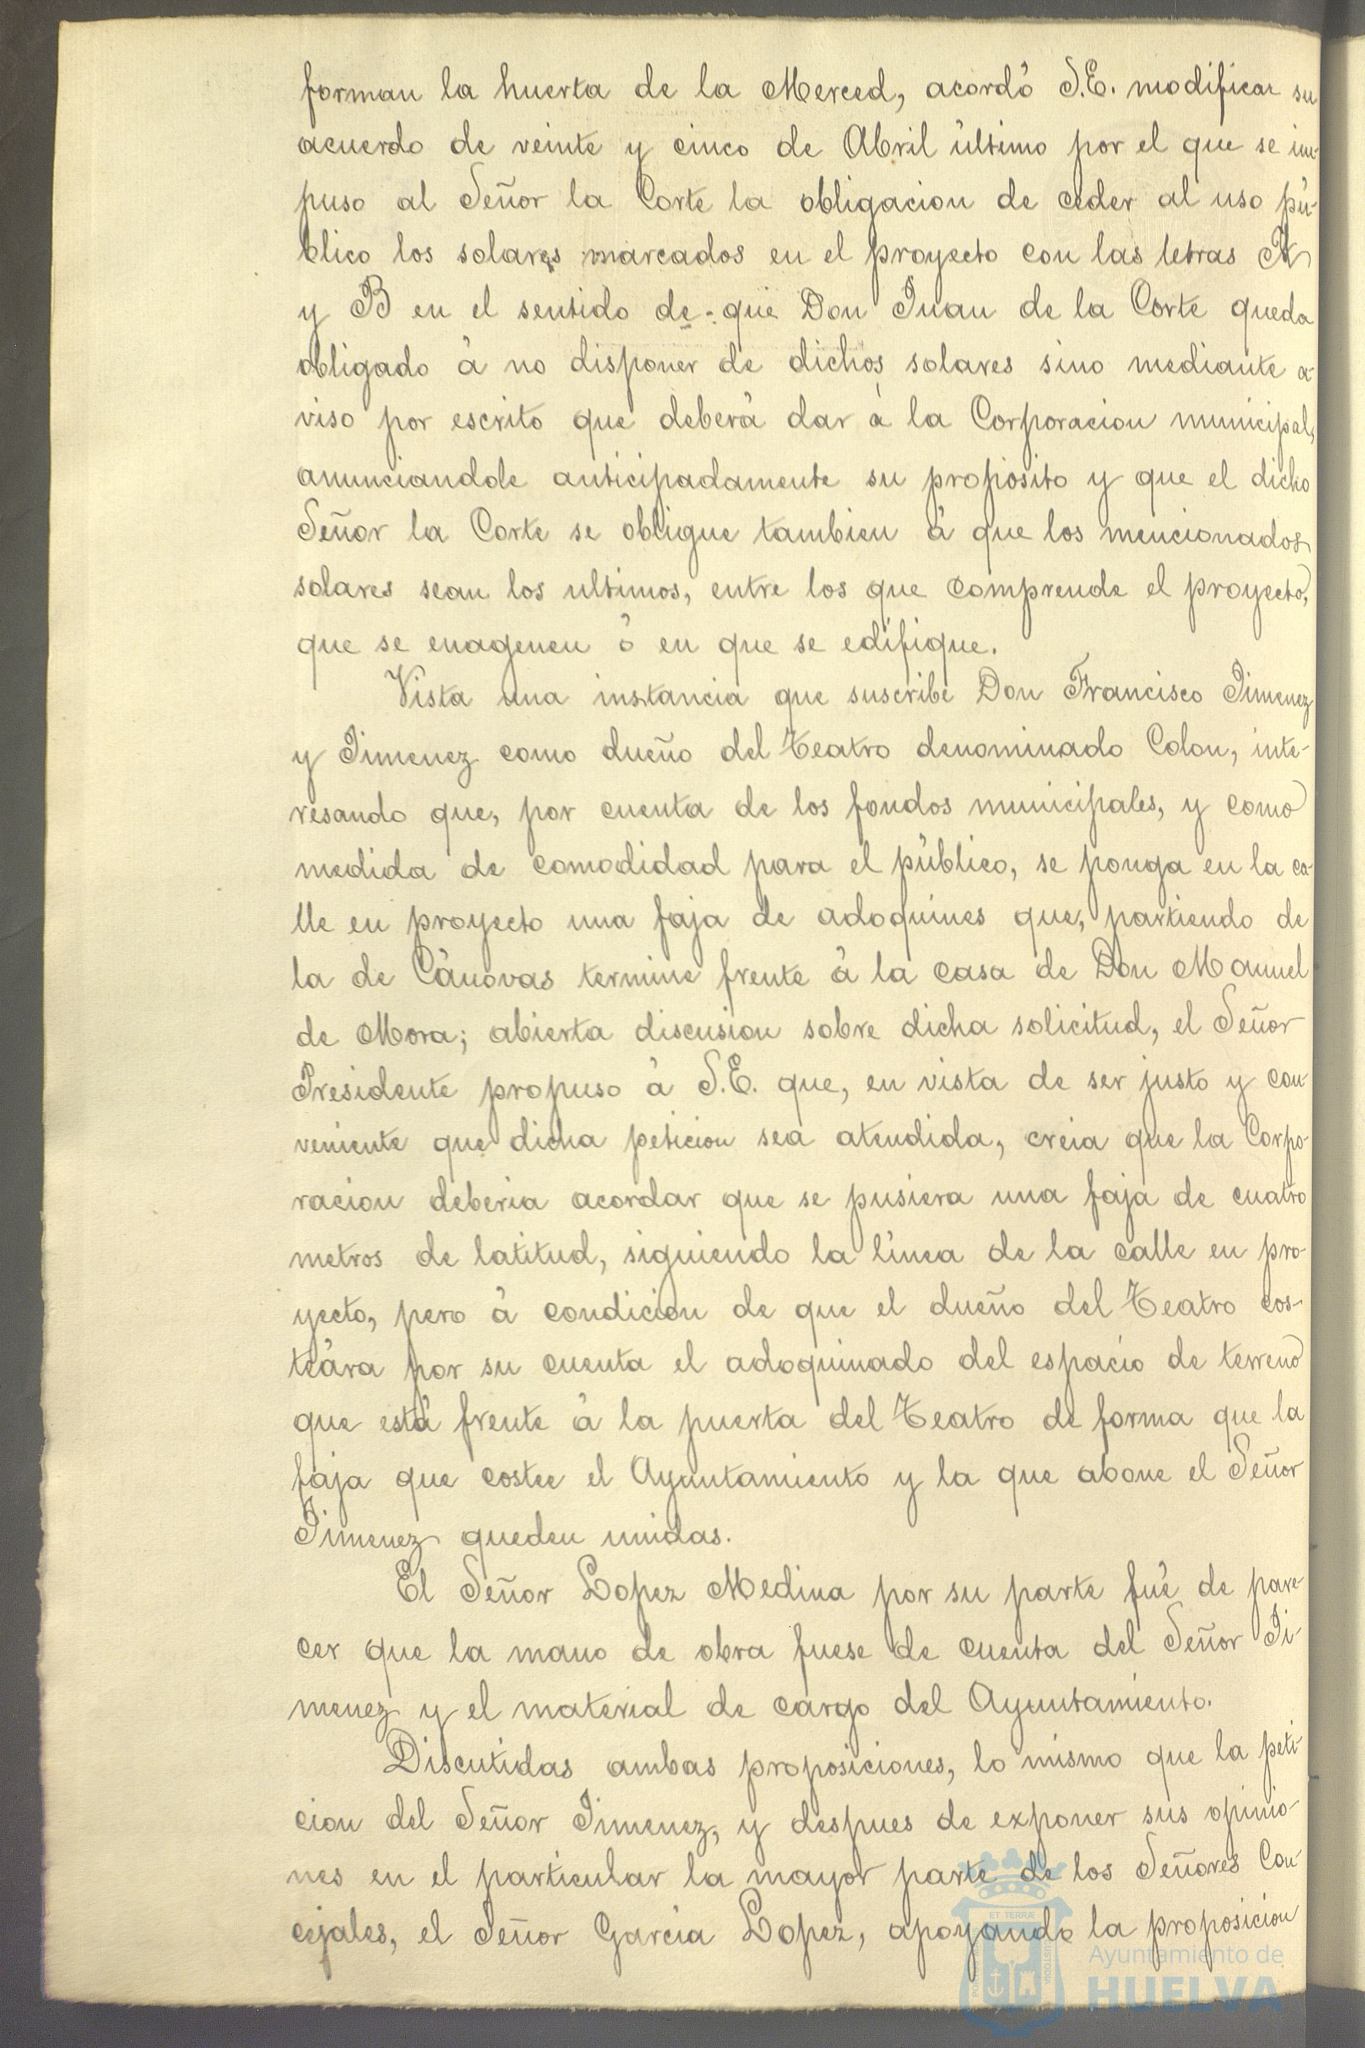 forman la huerta de la Merced, acordó S.E. modificar su
acuerdo de veinte y cinco de Abril último por el que se im-
puso al Señor la Corte la obligacion de ceder al uso pú-
blico los solares marcados en el proyecto con las letras A
y B en el sentido de que Don Juan de la Corte queda
obligado á no disponer de dichos solares sino mediante a-
viso por escrito que deberá dar á la Corporacion municipal,
anunciandole anticipadamente su propósito y que el dicho
Señor la Corte se obligue tambien á que los mencionados
solares sean los ultimos, entre los que comprende el proyecto,
que se enagenen ó en que se edifique.
Vista una instancia que suscribe Don Francisco Jimenez
y Jimenez como dueño del Teatro denominado Colon, inte-
resando que, por cuenta de los fondos municipales, y como
medida de comodidad para el público, se ponga en la ca-
lle en proyecto una faja de adoquines que, partiendo de
la de Cánovas termine frente á la casa de Don Manuel
de Mora; abierta discusion sobre dicha solicitud, el Señor
Presidente propuso á S.E. que, en vista de ser justo y con-
veniente que dicha peticion sea atendida, creia que la Corpo-
racion deberia acordar que se pusiera una faja de cuatro
metros de latitud, siguiendo la línea de la calle en pro-
yecto, pero á condicion de que el dueño del Teatro cos-
teára por su cuenta el adoquinado del espacio de terreno
que está frente á la puerta del Teatro de forma que la
faja que costee el Ayuntamiento y la que abone el Señor
Jimenez queden unidas.
El Señor Lopez Medina por su parte fué de pare-
cer que la mano de obra fuese de cuenta del Señor Ji-
menez y el material de cargo del Ayuntamiento.
Discutidas ambas proposiciones, lo mismo que la peti-
cion del Señor Jimenez, y despues de exponer sus opinio-
nes en el particular la mayor parte de los Señores Con-
cejales, el Señor García Lopez, apoyando la proposicion
Ayuntamiento de
HUELVA